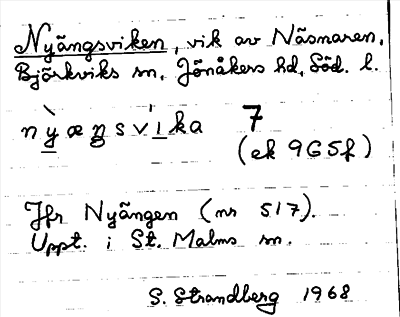 Nyängsviken, vik av Näsnaren,
Björkviks sn, Jönåkers hd, Söd. l.
nỳæŋsvíka 7
(ek 9G5f)
Jfr Nyängen (nr 517).
Uppt. i St. Malms sn.
S. Strandberg 1968